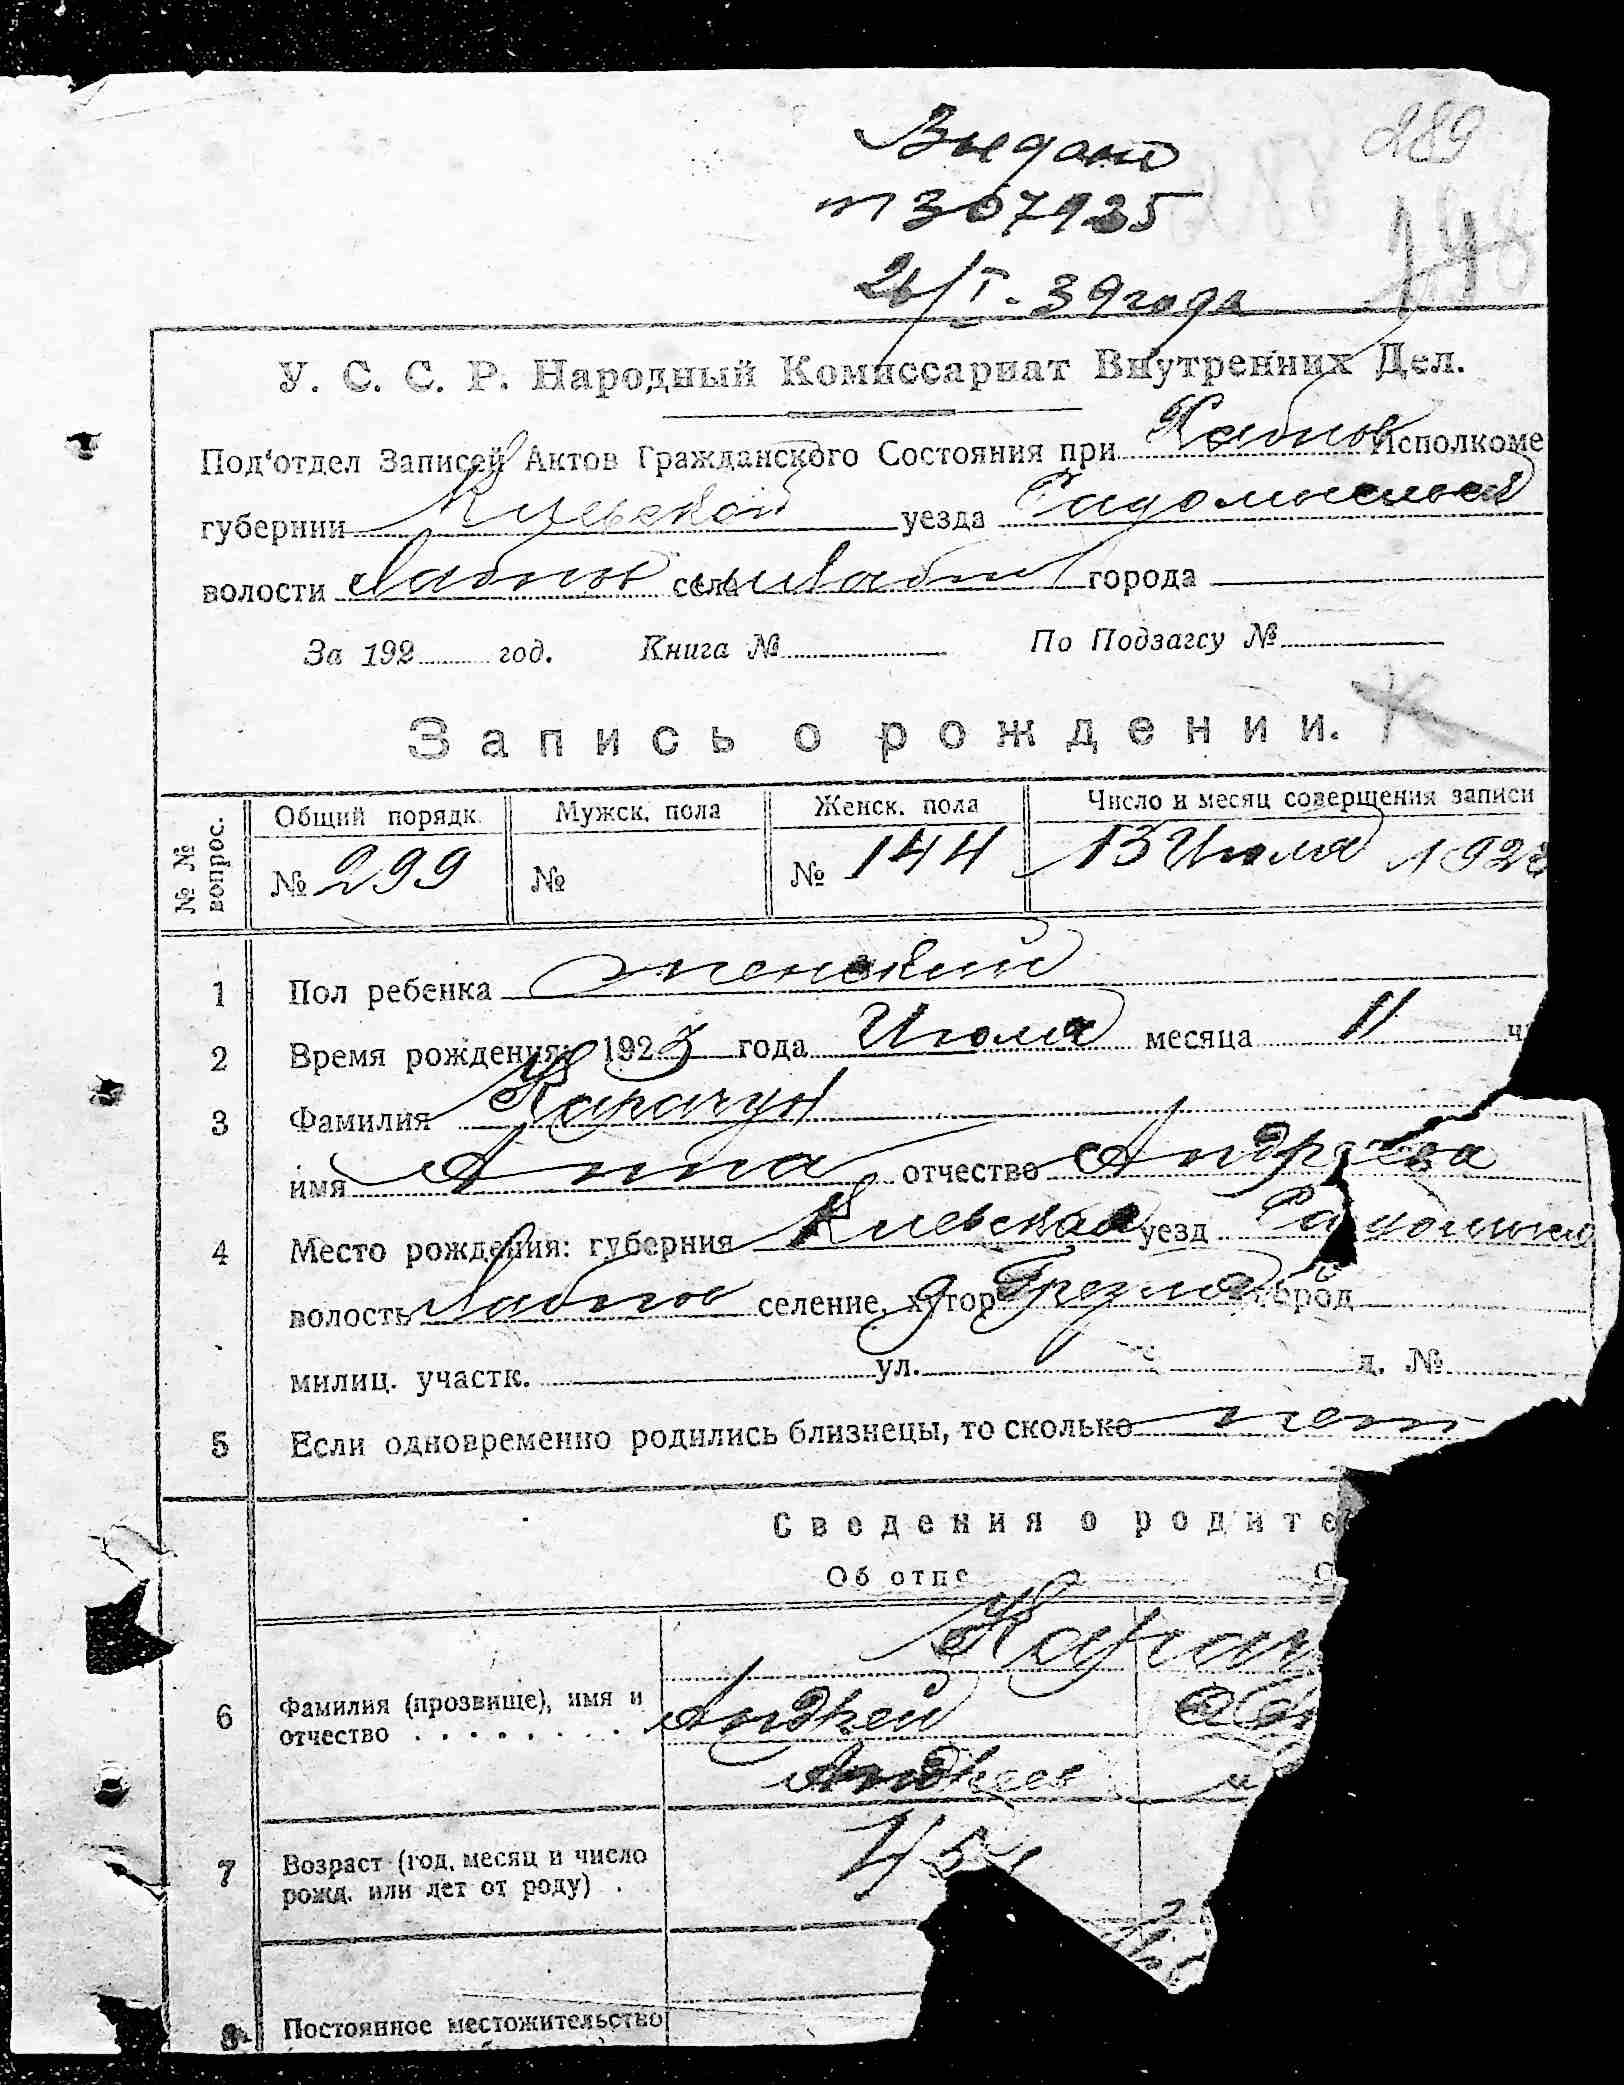 289
Выдано
№ 307925
26/I - 39 года
У. С. С. Р. Народный Комиссариат Внутренних Дел.
Под'отдел Записей Актов Гражданского Состояния при Хабнов Исполкоме
губернии Киевской уезда Радомысльск
волости Хабнов села Хабно города
За 192 год. Книга № По Подзагсу №
Запись о рождении.
№ № вопрос. Общий порядк. Мужск. пола Женск. пола Число и месяц совершения записи
№ 299 № № 144 13 Июля 192
1 Пол ребенка женский
2 Время рождения: 1923 года Июля месяца 11 ч
3 Фамилия Карачун
имя Анна отчество Андреева
4 Место рождения: губерния Киевская уезд Радомысл
волость Хабнов селение, хутор д Грезля город
милиц. участк. ул. д. №
5 Если одновременно родились близнецы, то сколько нет
Сведения о родите
Об отце О
Карач
6 Фамилия (прозвище), имя и Андрей
отчество . . . . . . . . Андреев
7 Возраст (год, месяц и число 45
рожд. или лет от роду) .
8 Постоянное местожительство